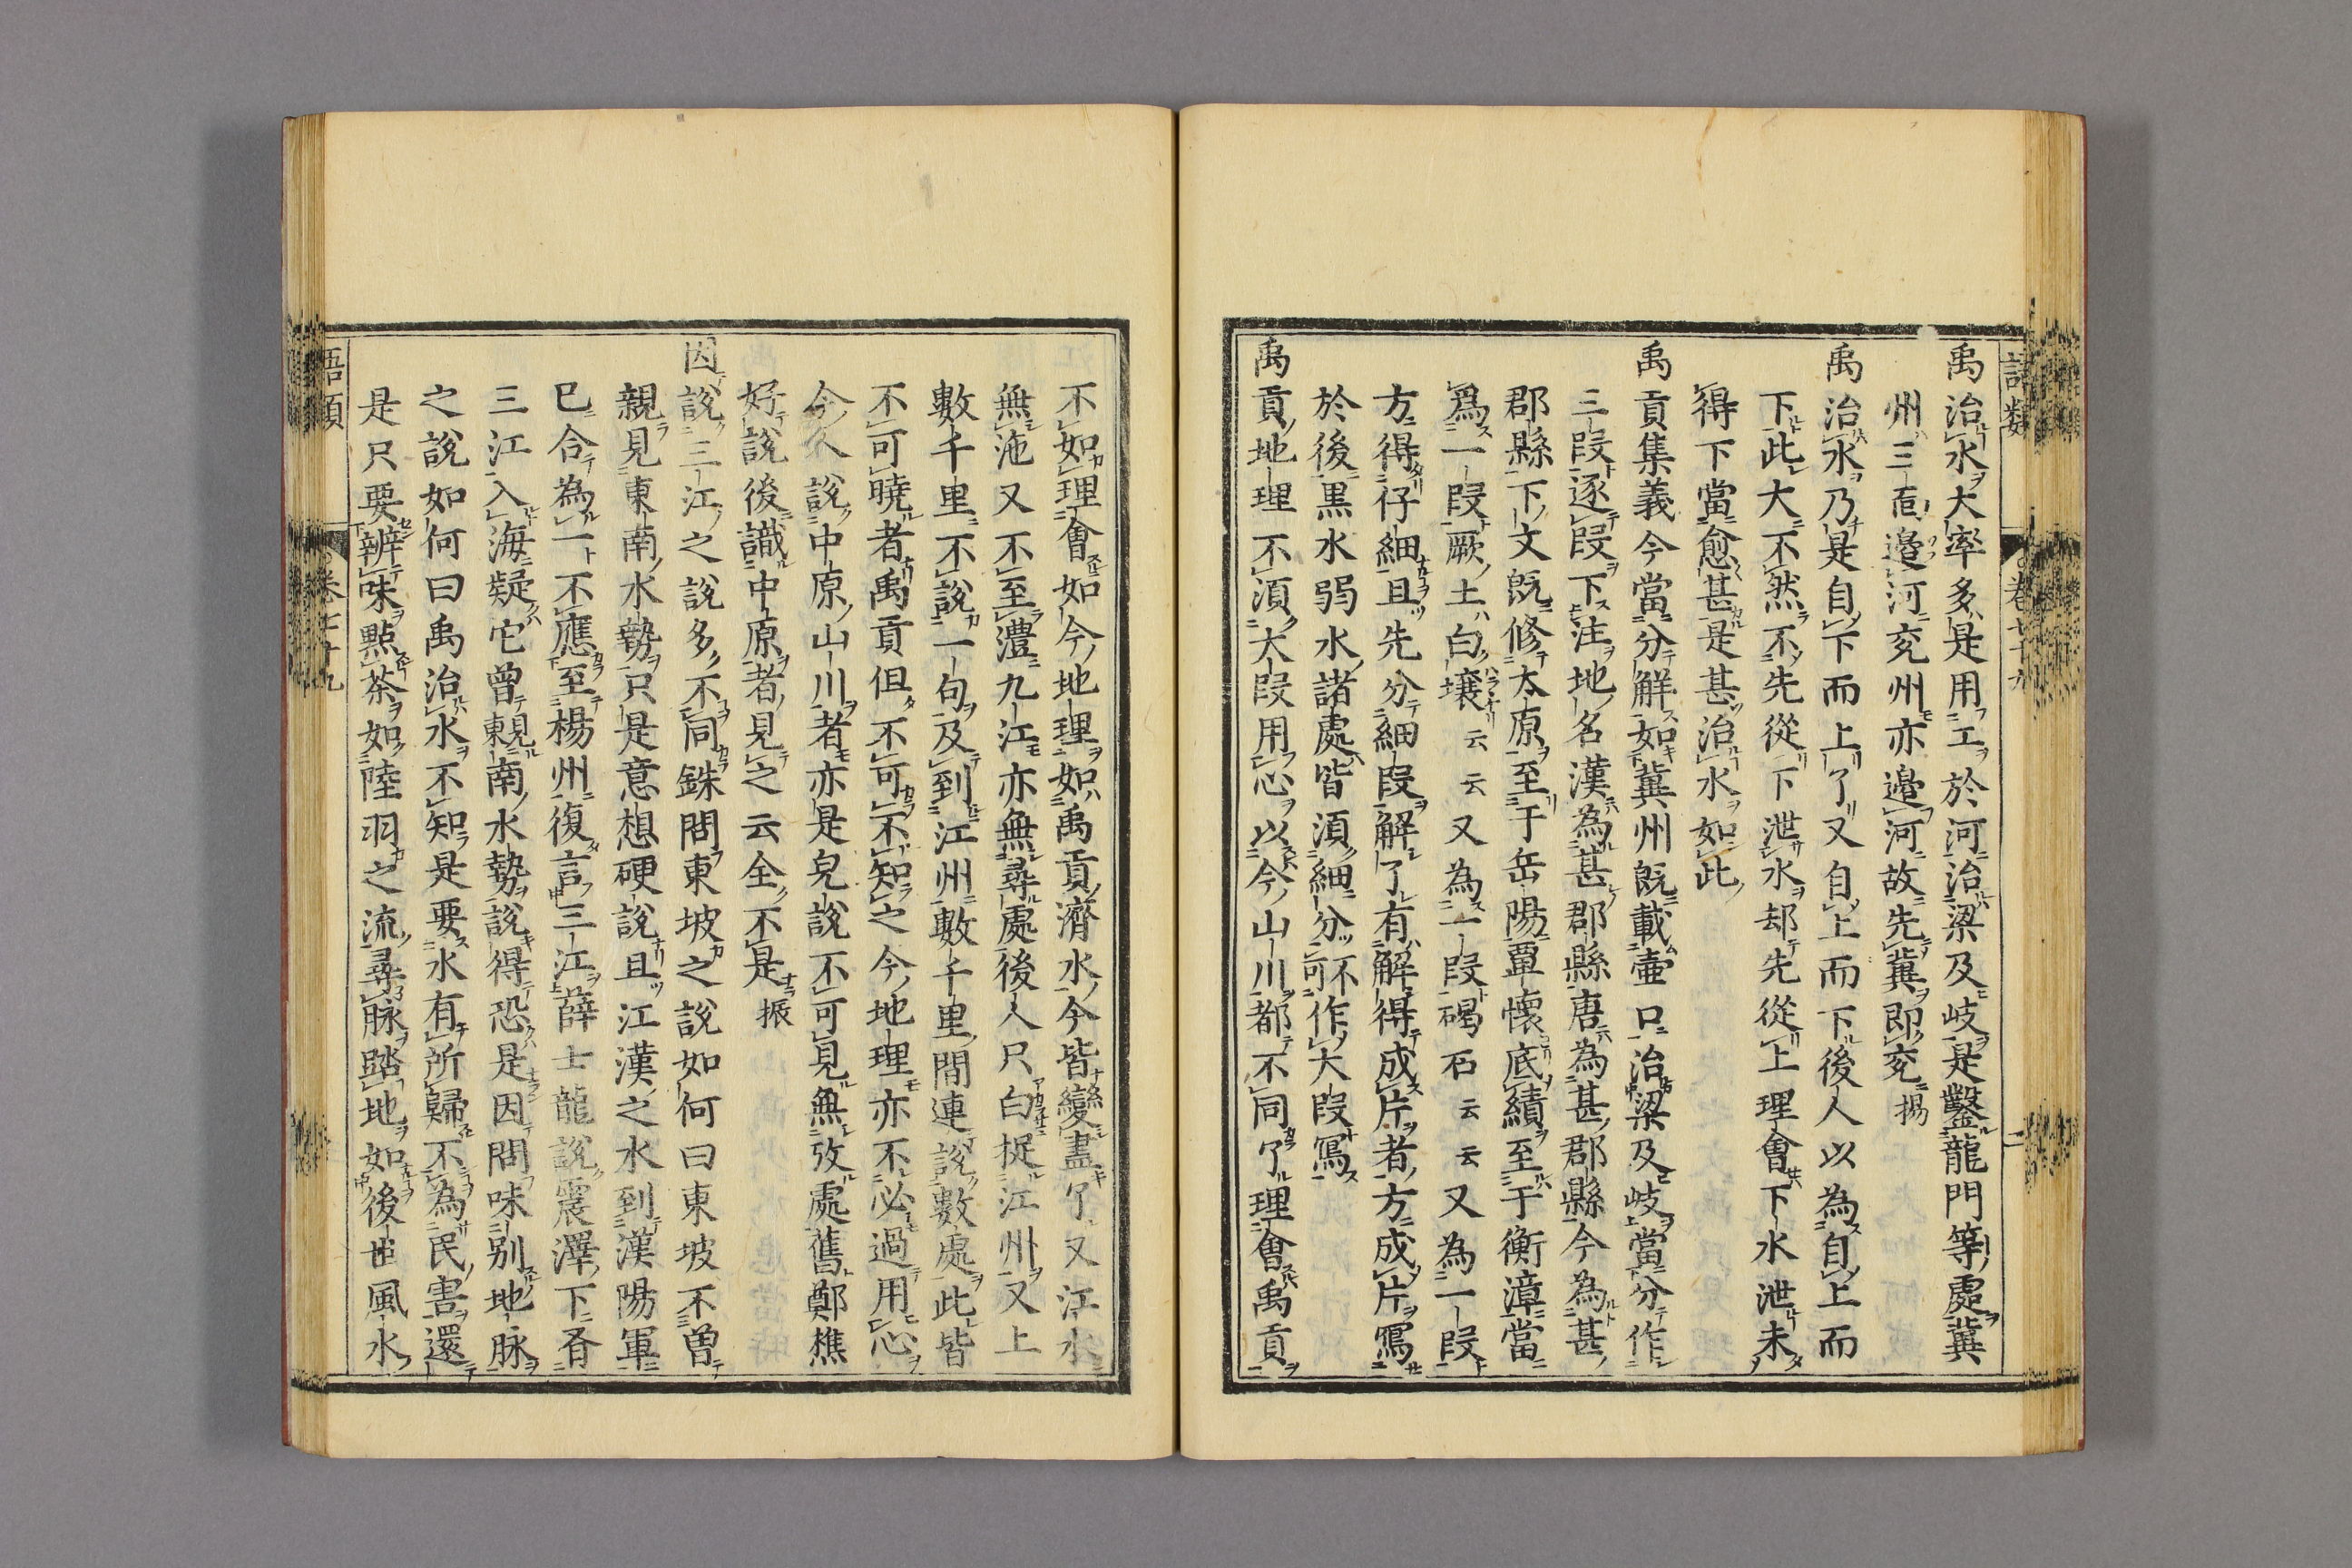 禹治水大率多是用工於河治梁及岐是鑿龍門等處冀
州三面邉河兖州亦邉河故先冀即兖揚
禹治水乃是自下而上了又自上而下後人以為自上而
下此大不然不先從下泄水却先從上理會下水泄未
得下當愈甚是甚治水如此
禹貢集義今當分解如冀州旣載壷口治梁及岐當分作
三叚逐叚下注地名漢為甚郡縣唐為甚郡縣今為甚
郡縣下文旣修太原至于岳陽覃懷底績至于衡漳當
爲一叚厥土白壤云云又為一叚碣石云云又為一叚
方得仔細且先分細叚解了有解得成片者方成片寫
於後黒水弱水諸處皆湏細分不可作大叚寫
禹貢地理不湏大叚用心以今山川都不同了理會禹貢
不如理會如今地理如禹貢濟水今皆變盡了又江水
無沲又不至澧九江亦無尋處後人只白捉江州又上
數千里不說一句及到江州數千里間連說數處此皆
不可曉者禹貢但不可不知之今地理亦不必過用心
今人說中原山川者亦是皃說不可見無攷處舊鄭樵
好說後識中原者見之云全不是振
因說三江之說多不同銖問東坡之說如何曰東坡不曽
親見東南水勢只是意想硬說且江漢之水到漢陽軍
已合為一不應至楊州復言三江薛士龍說震澤下有
三江入海疑它曾東見南水勢說得恐是因問味別地脉
之說如何曰禹治水不知是要水有所歸不為民害還
是只要辨味點茶如陸羽之流尋脉踏地如後世風水